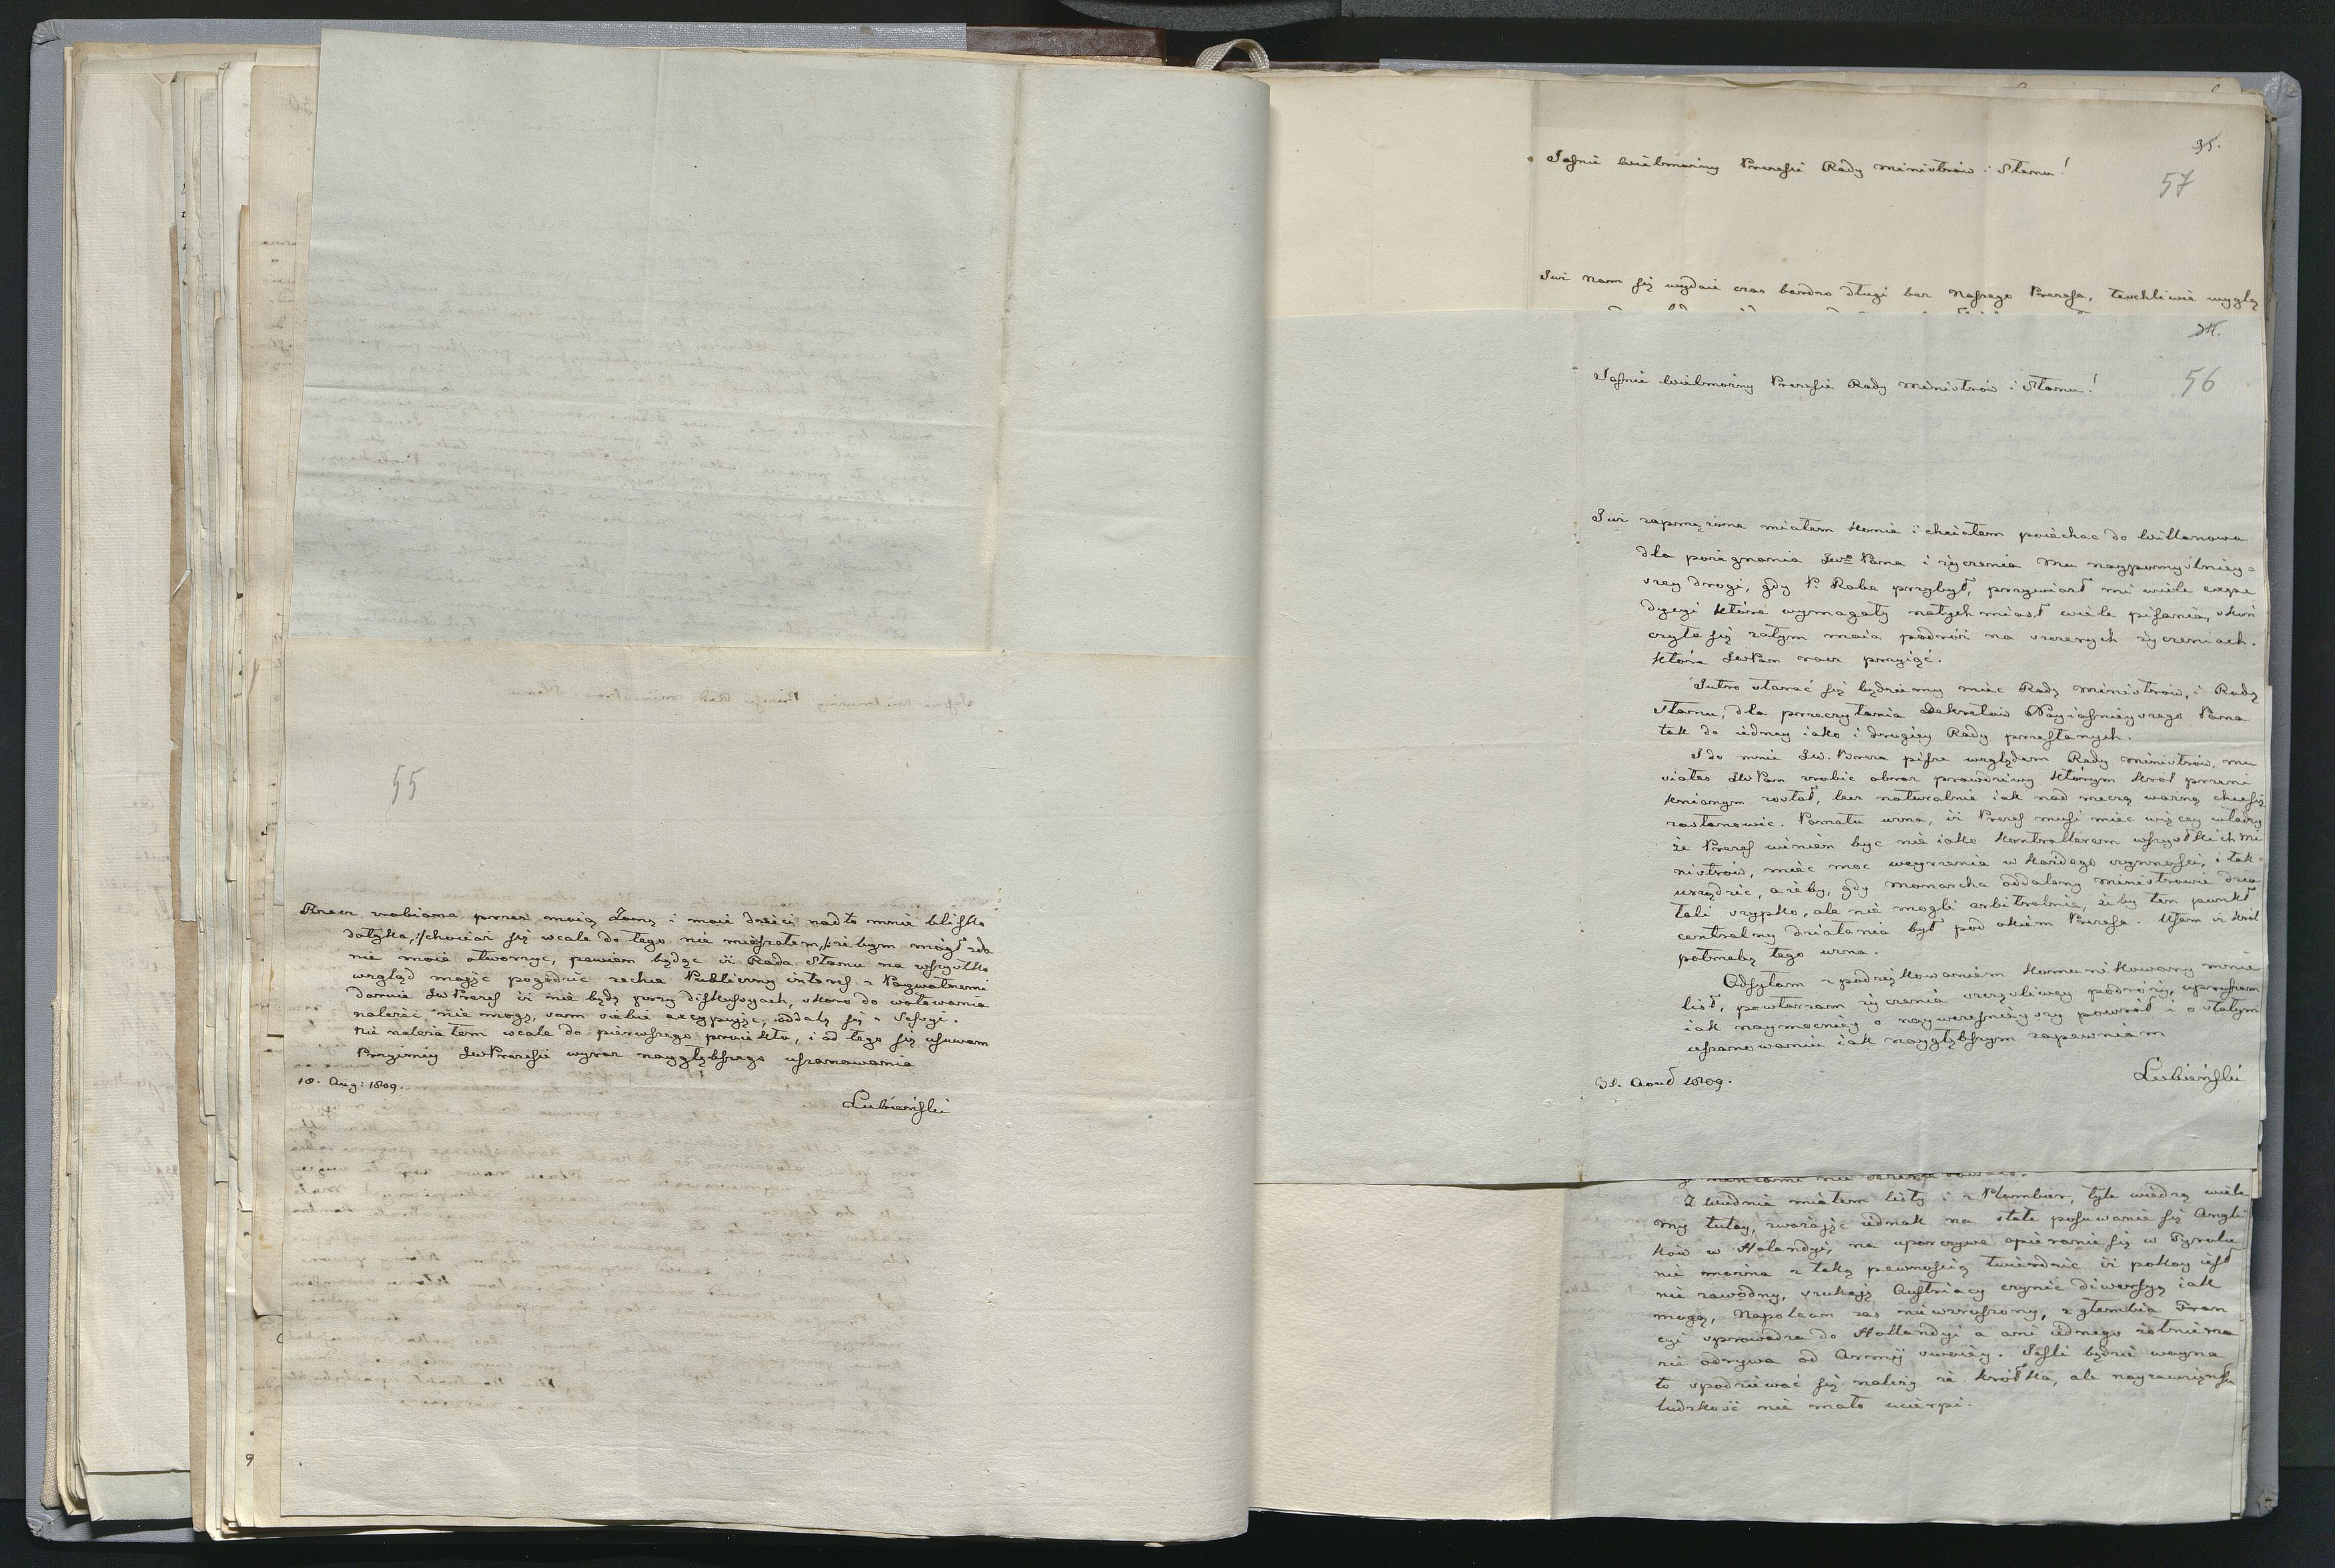 55
Rzecz zrobiona przez moią Żonę i moie dzieci nadto mnie blisko
dotyka, /:chociaż się wcale do tego nie mięszałem,:/ żebym mógł zda
nie moie otworzyć, pewien będąc iż Rada Stanu na wszystko
wzgląd maiąc pogodzić zechce Publiczny interes z Prywatnemi
daruie JWPrezes iż nie będę przy diskussyach, skoro do wotowania
należeć nie mogę, sam siebie excypuiąc, oddalę się z Sessyi.
nie należałem wcale do pierwszego proiektu, i od tego się usuwam
Przyimiy JWPrezesie wyraz naygłębszego uszanowania
18. Aug: 1809.
Lubieński
35.
57
Jaśnie Wielmożny Prezesie Rady Ministrów i Stanu!
Już nam się wydaie czas bardzo długi bez Naszego Prezesa, teschliwie wyglą
34.
56
Jaśnie Wielmożny Prezesie Rady Ministrów i Stanu!
Już zaprzężone miałem konie i chciałem poiechac do Willanowa
dla pożegnania JWo Pana i życzenia Mu naypomyślniey=
szey drogi, gdy P. Raba przybył, przywiozł mi wiele expe
dycyi które wymagały natychmiast wiele pisania, skoń
czyło się zatym moia podróż na szczerych życzeniach.
które JWPan racz przyiąć.
Jutro starać się będziemy mieć Radę Ministrów, i Radę
Stanu, dla przeczytania Dekretów Nayiaśnieyszego Pana
tak do iedney iako i drugiey Rady przesłanych.
I do mnie JW. Breza pisze względem Rady Ministrów, mu
siałeś JWPan zrobic obraz prawdziwy którym król przeni
knionym został, lecz naturalnie iak nad rzeczą ważną chce się
zastanowic. Pomału uzna, iż Prezes musi mieć więcey władzy
że Prezes winien byc nie iako kontrollerem wszystkich Mi
nistrów, mieć moc weyrzenia w każdego czynności, i tak
urządzic, ażeby, gdy Monarcha oddalony Ministrowie dzia
łali szypko, ale nie mogli arbitralnie, żeby ten punkt
centralny działania był pod okiem Prezesa. Ufam iż król
potrzebę tego uzna.
Odsyłam z podziękowaniem kommunikowany mnie
list, powtarzam życzenia szczęśliwey podróży, upraszam
iak naymocniey o naywcześnieyszy powrót i o stałym
uszanowaniu iak naygłębszym zapewniam
31. Aout 1809.
Lubieński
Z Wiednia miałem listy i z Plombier, tyle wiedzą wiele
my tutay, zważaiąc iednak na stałe posuwanie się Angli
ków w Holandyi, na uporczywe opieranie się w Tyrolu
nie można z taką pewnością twierdzic iż pokoy iest
nie zawodny, szukaią Austriacy czynić diwersyą iak
mogą, Napoleon zas niewzruszony, z głembia Fran
cyi sprowadza do Hollandyi a ani iednego żołnierza
nie odrywa od Armij swoiey. Jeśli będzie woyna
to spodziewać się należy że krótka, ale nayzawziętsza
ludzkość nie mało ucierpi.